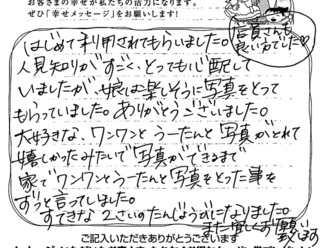 お客さまの幸せが私たちの活力になります。
ぜひ「幸せメッセージ」をお願いします!
店員さんも
良い方でした♡
はじめて利用されてもらいました。
人見知りがすごく、とっても心配して
いましたが、娘は楽しそうに写真をとって
もらっていました。ありがとうございました。
大好きな、ワンワンとうーたんと写真がとれて
嬉しかったみたいで写真ができるまで
家でワンワンとうーたんと写真をとった事を
ずっと言ってしました。
すてきな2さいのたんじょう日になりました。
また宜しくお願いします
ご記入いただきありがとうございます